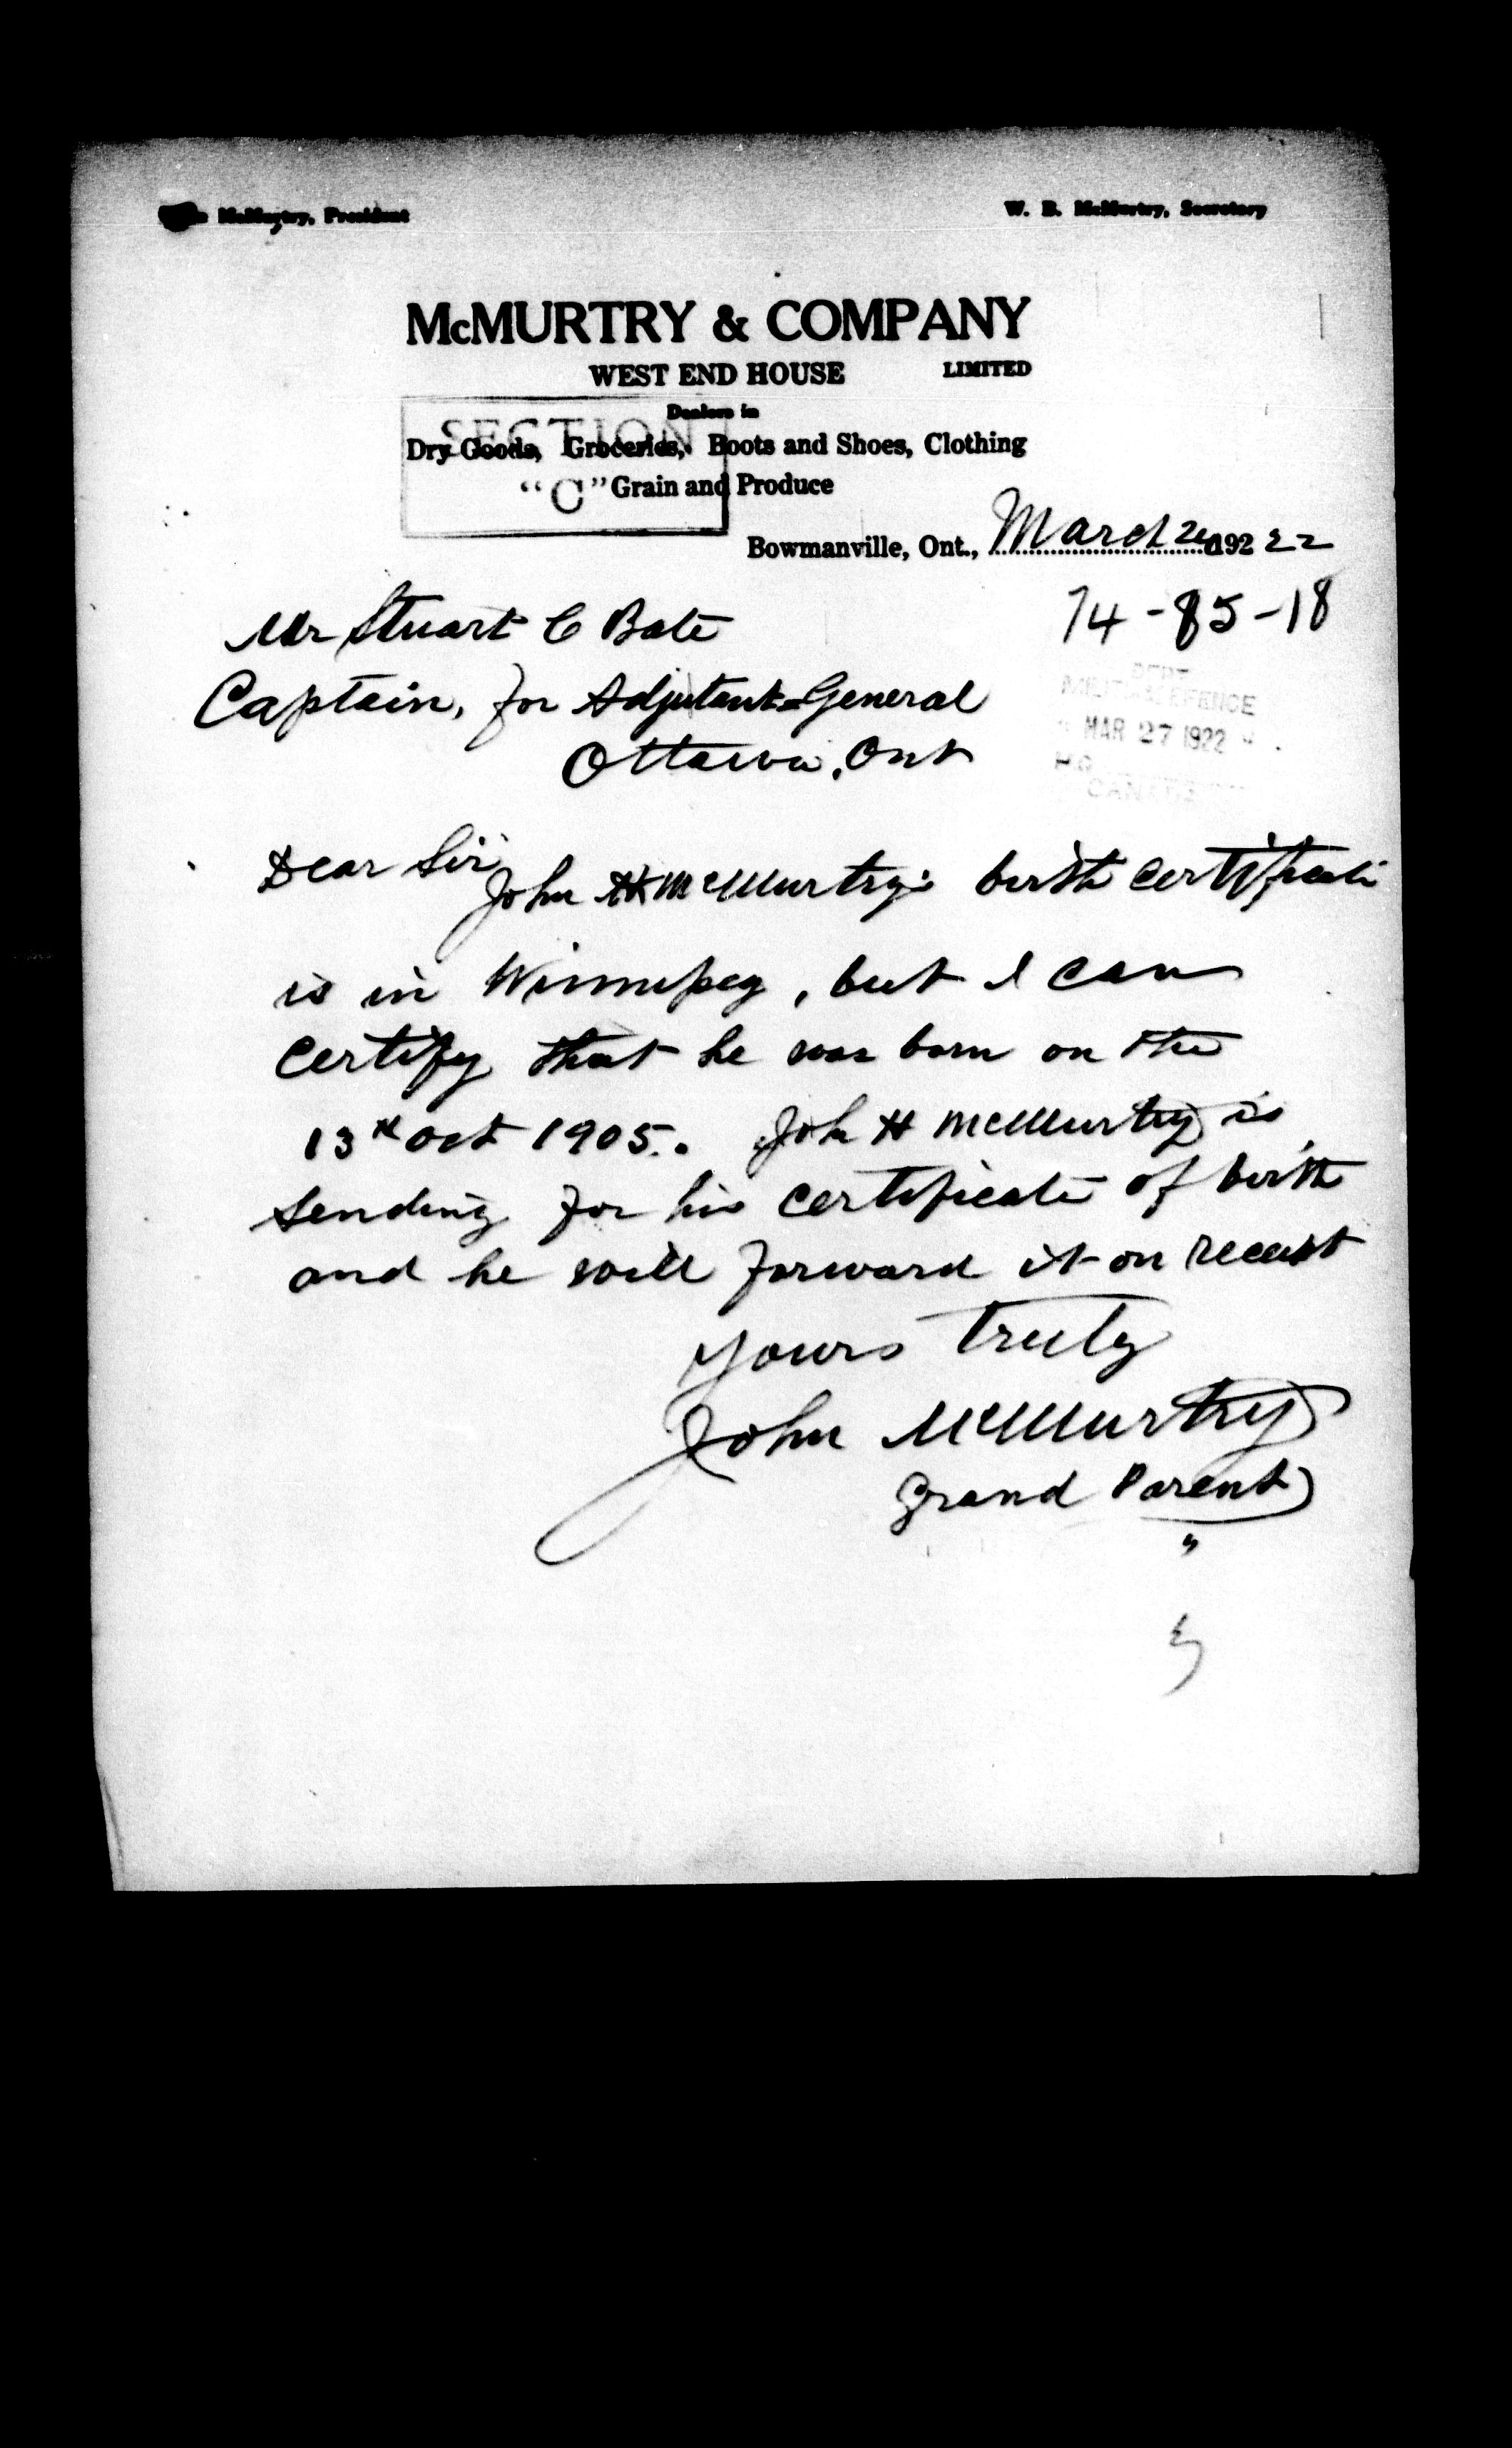 McMurtry, President
W. B. McMurtry, Secretary
McMURTRY & COMPANY
WEST END HOUSE LIMITED
Dealers in
SECTION
Dry Goods, Groceries, Boots and Shoes, Clothing
"C"
Grain and Produce
Bowmanville, Ont., March 192 22
74-85-18
Mr Stuart C Bate
Captain, for Adjutant-General
Ottawa, Ont
DEPT
MILITIA & DEFENCE
MAR 27 1922
H.Q.
CANADA
Dear Sir,
John H McMurtry's birth certificate
is in Winnipeg, but I can
certify that he was born on the
13th Oct 1905. Joh H McMurtry is
sending for his certificate of birth
and he will forward it on receist
yours truly
John McMurtry
Grand Parent